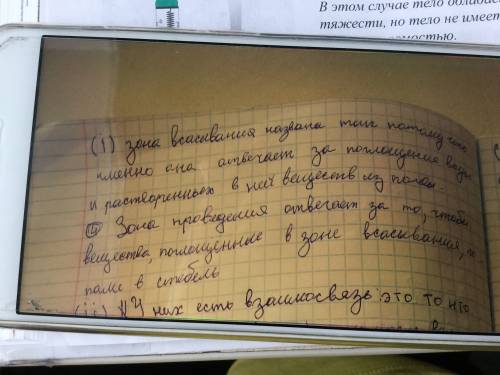 В этом случае тело облада
тяжести, но тело не имее
мостью.
(i) зона всасывания названа так потому что
именно она отвечает за поглощение воды
и растворенных в ней веществ из почвы.
Зона проведения отвечает за то, чтобы
вещества, поглощенные в зоне всасывания, по
пали в стебель
(iii) У них есть взаимосвязь: это то что